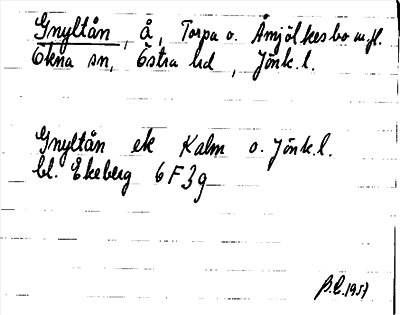 Gnyltån, å, Torpa o. Åmjölkesbo m.fl.
Ökna sn, Östra hd, Jönk.l.
Gnyltån ek Kalm o. Jönk.l.
bl. Ekeberg 6 F 3 g
B.E. 1957